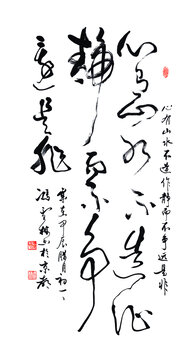 心有山水不造作静而不争远是非
心有山水不造作
静而不争
远是非
岁在甲辰腊月初一
冯雪于京都